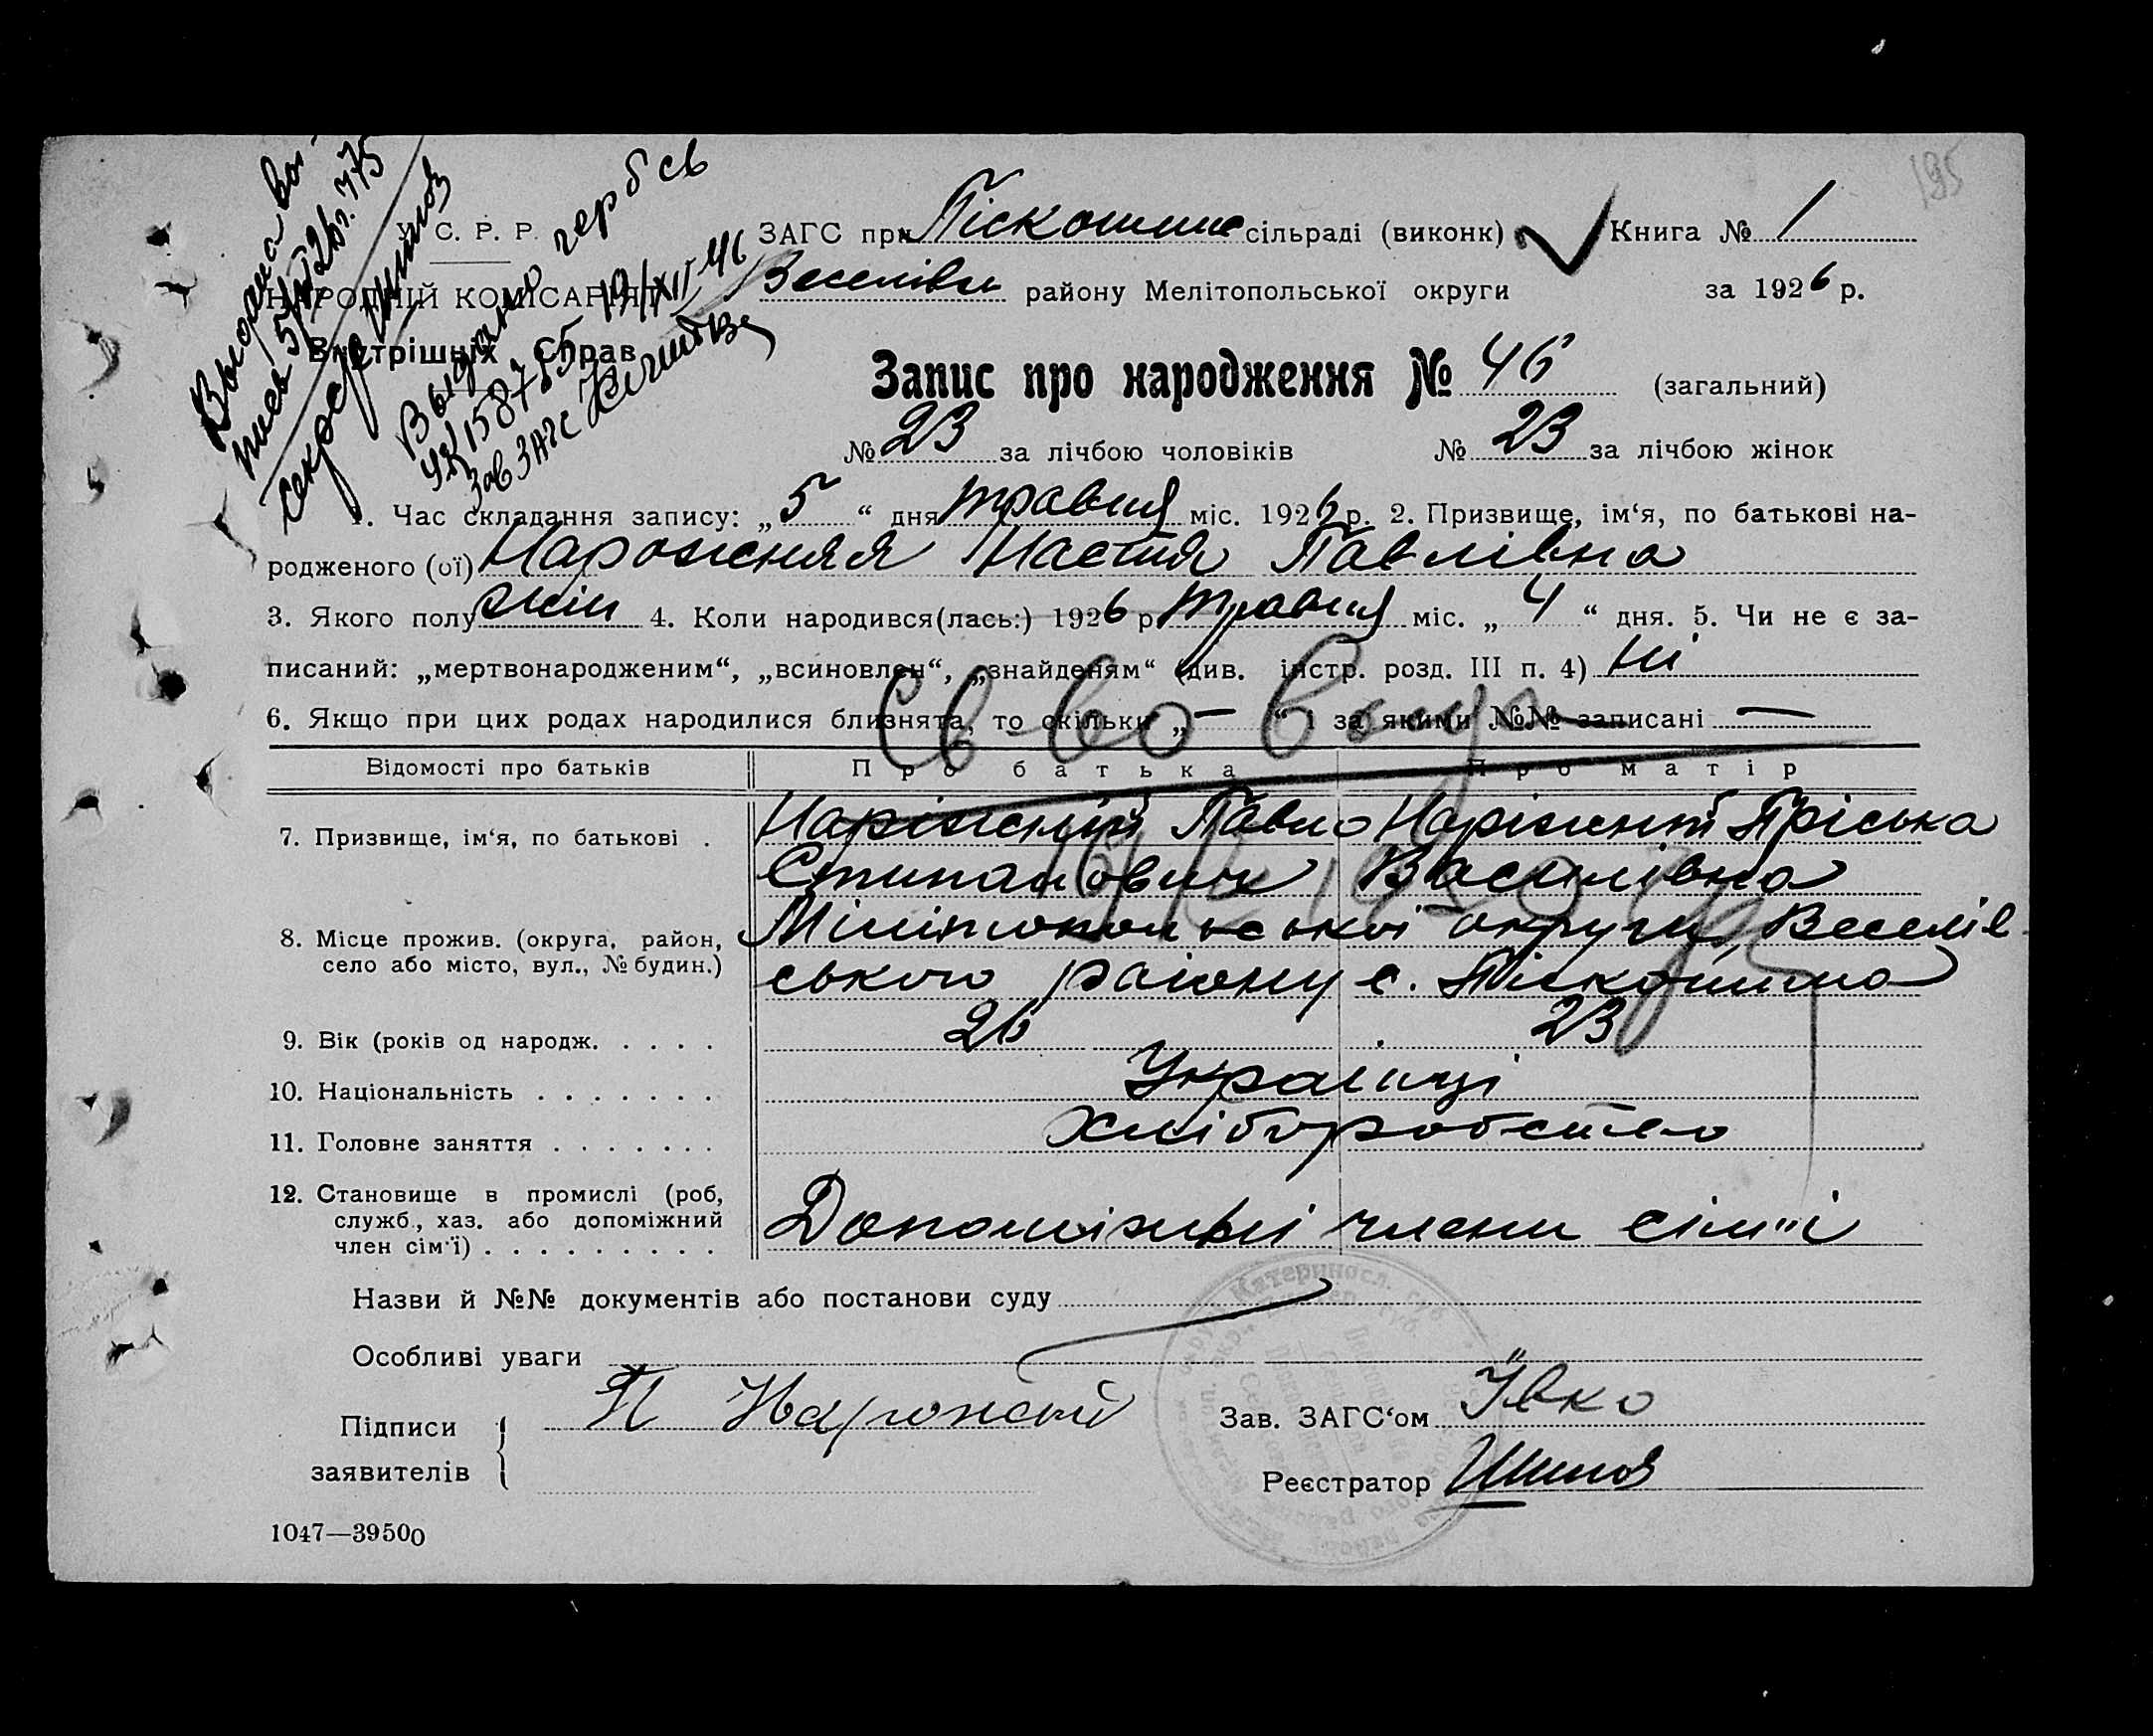 195
У. С. Р. Р.
НАРОДНІЙ КОМІСАРІЯТ
Внутрішніх Справ
Выдана вы-
пись 5/V 26 г. 775
секрет
Выдано герб св
19/XII 46
1587
зав ЗАГС
ЗАГС при Піскошине сільраді (виконк) Книга № 1
Веселівськ району Мелітопольської округи за 1926 р.
Запис про народження № 46 (загальний)
№ 23 за лічбою чоловіків № 23 за лічбою жінок
1. Час складання запису: „5“ дня травня міс. 1926 р. 2. Призвище, ім‘я, по батькові на-
родженого (ої) Нарожняя Настя Павлівна
3. Якого полу жін 4. Коли народився(лась:) 1926 р. травня міс. „4“ дня. 5. Чи не є за-
писаний: „мертвонародженим“, „всиновлен“, „знайденям“ (див. інстр. розд. III п. 4) ні
6. Якщо при цих родах народилися близнята, то скільки „—“ і за якими №№ записані —
Св-во
Відомості про батьків Про батька Про матір
7. Призвище, ім‘я, по батькові . Наріжній Павло Наріжня Пріська
Стипанович Василівна
8. Місце прожив. (округа, район, Мілітопольської округи, Веселів
село або місто, вул., № будин.) ського району с. Піскошино
9. Вік (років од народж. . . . . 26 23
10. Національність . . . . . . . Українці
11. Головне заняття . . . . . . . Хліборобство
12. Становище в промислі (роб, Допоміжні члени сім"ї
служб., хаз. або допоміжний
член сім‘ї) . . . . . . . . .
Назви й №№ документів або постанови суду
Особливі уваги
Підписи П Нарожній Зав. ЗАГС‘ом Івко
заявителів Реєстратор
1047—39500